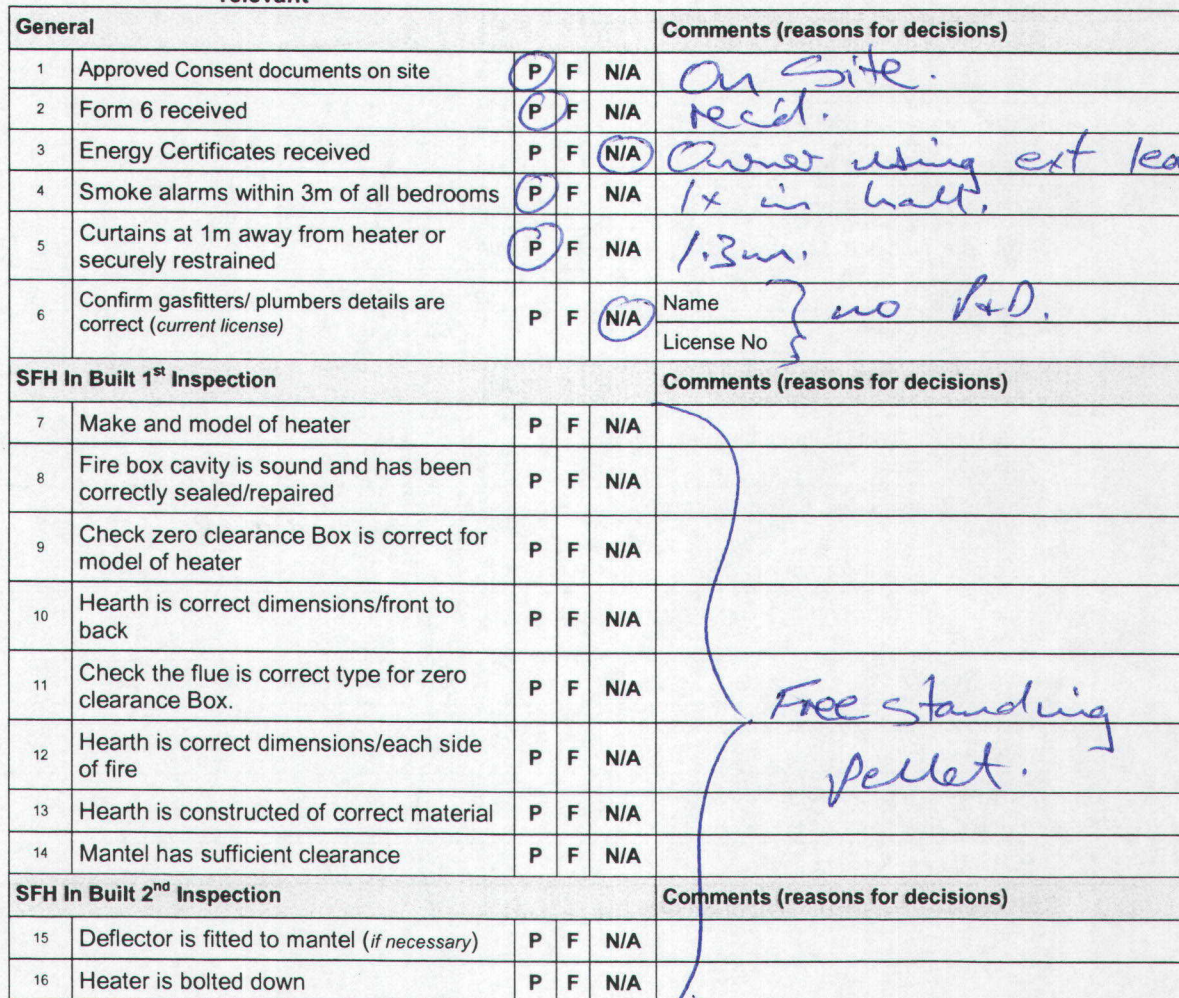 relevant
General Comments (reasons for decisions)
1 Approved Consent documents on site P F N/A On Site.
2 Form 6 received P F N/A rec'd.
3 Energy Certificates received P F N/A Owner using ext lea
4 Smoke alarms within 3m of all bedrooms P F N/A 1x in hall.
5 Curtains at 1m away from heater or
securely restrained P F N/A 1.3m.
6 Confirm gasfitters/ plumbers details are
correct (current license) P F N/A Name
License No
no P+D.
SFH In Built 1st Inspection Comments (reasons for decisions)
7 Make and model of heater P F N/A
8 Fire box cavity is sound and has been
correctly sealed/repaired P F N/A
9 Check zero clearance Box is correct for
model of heater P F N/A
10 Hearth is correct dimensions/front to
back P F N/A
11 Check the flue is correct type for zero
clearance Box. P F N/A
Free standing
pellet.
12 Hearth is correct dimensions/each side
of fire P F N/A
13 Hearth is constructed of correct material P F N/A
14 Mantel has sufficient clearance P F N/A
SFH In Built 2nd Inspection Comments (reasons for decisions)
15 Deflector is fitted to mantel (if necessary) P F N/A
16 Heater is bolted down P F N/A